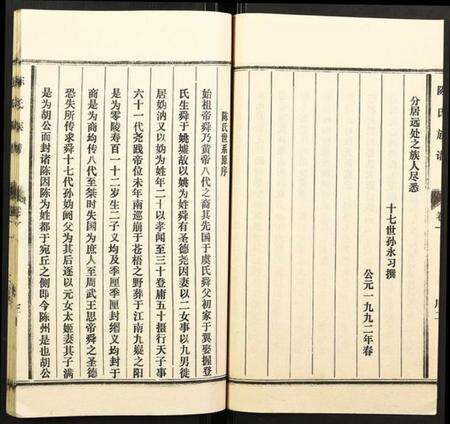 陈氏族谱
卷一
分居远处之族人尽悉
十七世孙永习撰
公元一九九二年春
陈氏世系源序
始祖帝舜乃黄帝八代之裔其先国于虞氏舜父初家于冀娶握登
氏生舜于姚墟故以姚为姓舜有圣德尧因妻以二女事以九男徙
居妫汭又以妫为姓年二十以孝闻至三十登庸五十摄行天子事
六十一代尧践帝位未年南巡崩于苍梧之野葬于江南九疑之阳
是为零陵寿百一十二岁生二子义均及季厘季厘封缗义均封于
商是为商均传八代至桀时失国为庶人至周武王思帝舜之圣德
恐失所传求舜十七代孙妫阏父为其后逐以元女太姬妻其子满
是为胡公而封诸陈因陈为姓都于宛丘之侧即令陈州是也胡公